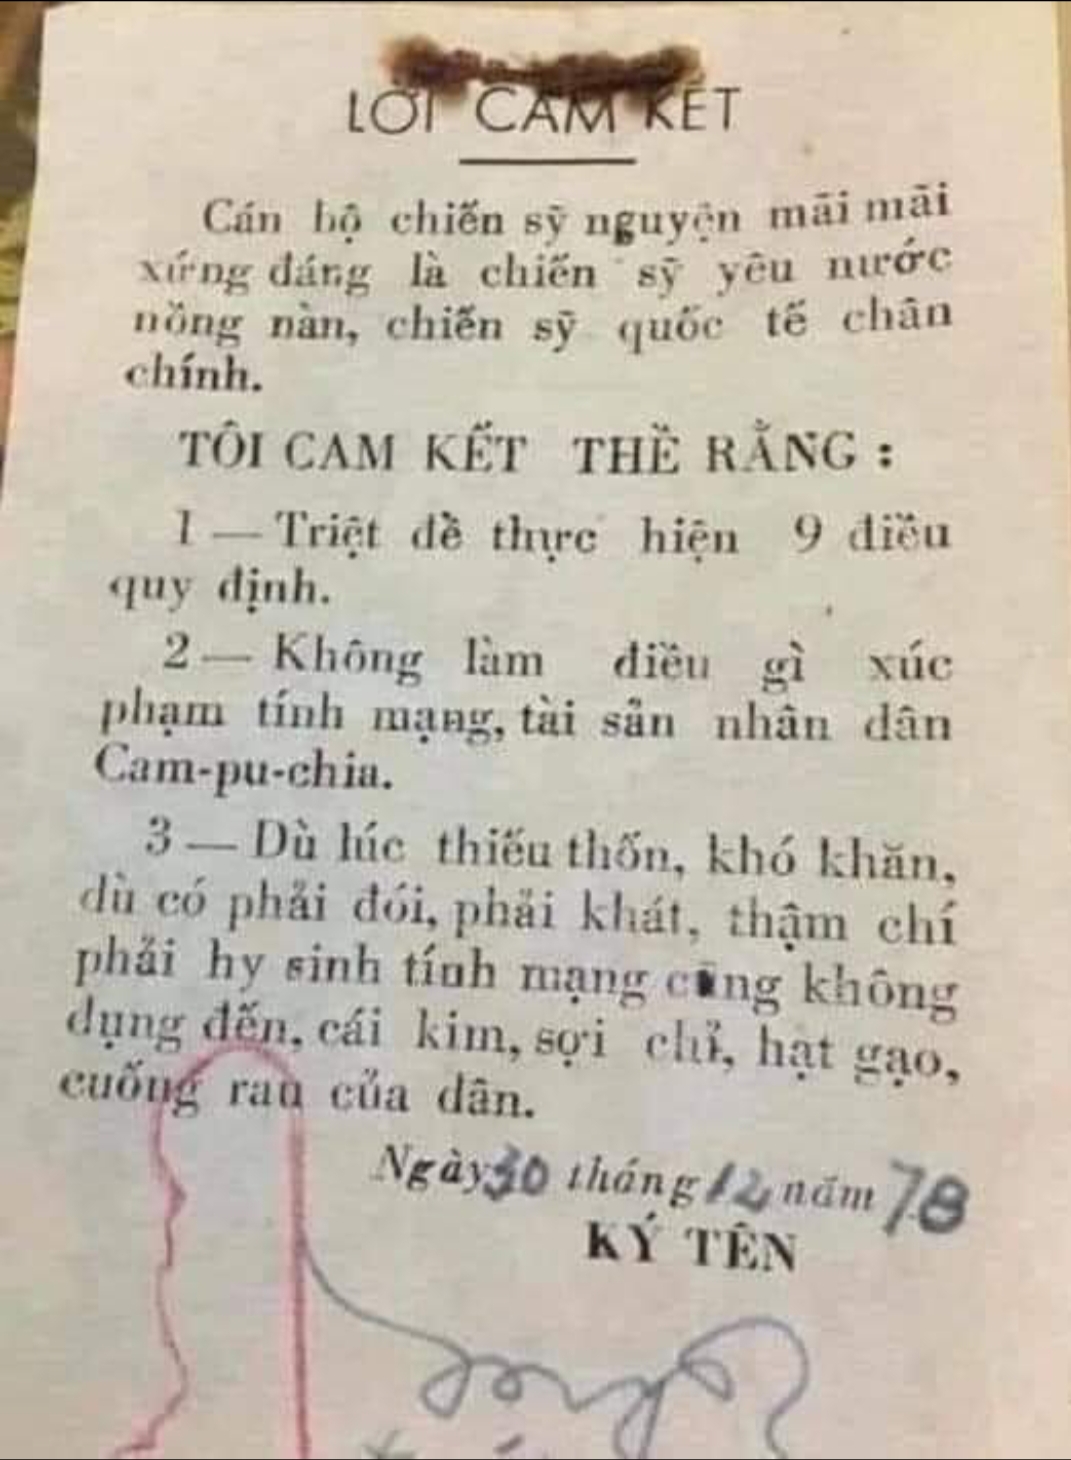 LỜI CAM KẾT
Cán bộ chiến sỹ nguyện mãi mãi
xứng đáng là chiến sỹ yêu nước
nồng nàn, chiến sỹ quốc tế chân
chính.
TÔI CAM KẾT THỀ RẰNG :
1 — Triệt để thực hiện 9 điều
quy định.
2 — Không làm điều gì xúc
phạm tính mạng, tài sản nhân dân
Cam-pu-chia.
3 — Dù lúc thiếu thốn, khó khăn,
dù có phải đói, phải khát, thậm chí
phải hy sinh tính mạng cũng không
dụng đến, cái kim, sợi chỉ, hạt gạo,
cuống rau của dân.
Ngày 30 tháng 12 năm 78
KÝ TÊN